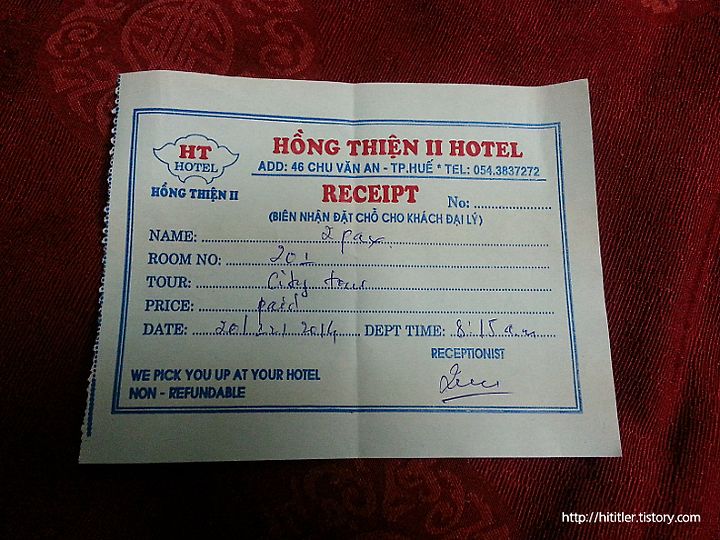 HT
HOTEL
HỒNG THIỆN II
HỒNG THIỆN II HOTEL
ADD: 46 CHU VĂN AN - TP.HUẾ * TEL: 054.3837272
RECEIPT
No:
(BIÊN NHẬN ĐẶT CHỖ CHO KHÁCH ĐẠI LÝ)
NAME: 2 pax
ROOM NO: 201
TOUR: City tour
PRICE: paid
DATE: 2014 DEPT TIME: 8:15 a.m
RECEPTIONIST
WE PICK YOU UP AT YOUR HOTEL
NON - REFUNDABLE
http://hititler.tistory.com